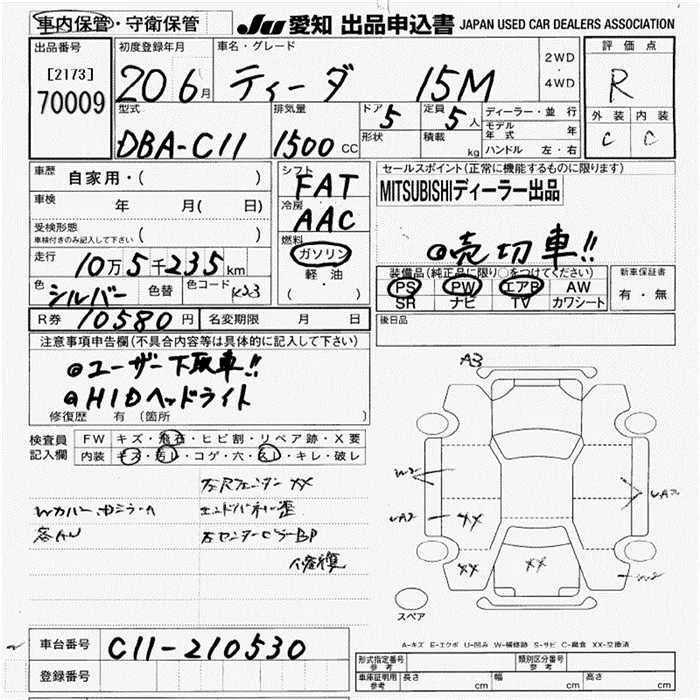 車内保管・守衛保管 JU 愛知 出品申込書 JAPAN USED CAR DEALERS ASSOCIATION
出品番号 初度登録年月 車名・グレード 2WD・4WD 評価点
[2173] 20 6月 ティーダ 15M R
70009 型式 排気量 ドア 5 定員 5人 ディーラー・並行 外装 内装
DBA-C11 1500 CC 形状 積載 kg モデル年式 年 C C
ハンドル 左・右
車歴 自家用・( ) シフト FAT セールスポイント(正常に機能するものに限ります)
車検 年 月( 日) 冷房 AAC MITSUBISHIディーラー出品
受検形態 車検付きのみ記入して下さい ( ) 燃料 ◎売切車!!
走行 10万5千235km ガソリン 装備品(純正品に限り○をつけてください) 新車保証書
軽油 PS PW エアB AW 有・無
色 シルバー 色替 色コード K23 ( ・ ) SR ナビ TV カワシート
R券 10580円 名変期限 月 日 後日品
注意事項申告欄(不具合内容等は具体的に記入して下さい)
◎ユーザー下取車!!
◎HIDヘッドライト
修復歴 有 (箇所 )
A3
検査員記入欄 FW キズ・飛石・ヒビ割・リペア跡・X要
内装 キズ・汚レ・コゲ・穴・スレ・キレ・破レ
XX
エンドパネル歪
右センターピラーBP
修復
W2
XX
XX XX
W2
スペア
車台番号 C11-210530
登録番号
A-キズ E-エクボ U-凹み W-補修跡 S-サビ C-腐食 XX-交換済
形式指定番号 参考 類別区分番号 参考
車庫証明用 参考 長さ cm 幅 cm 高さ cm